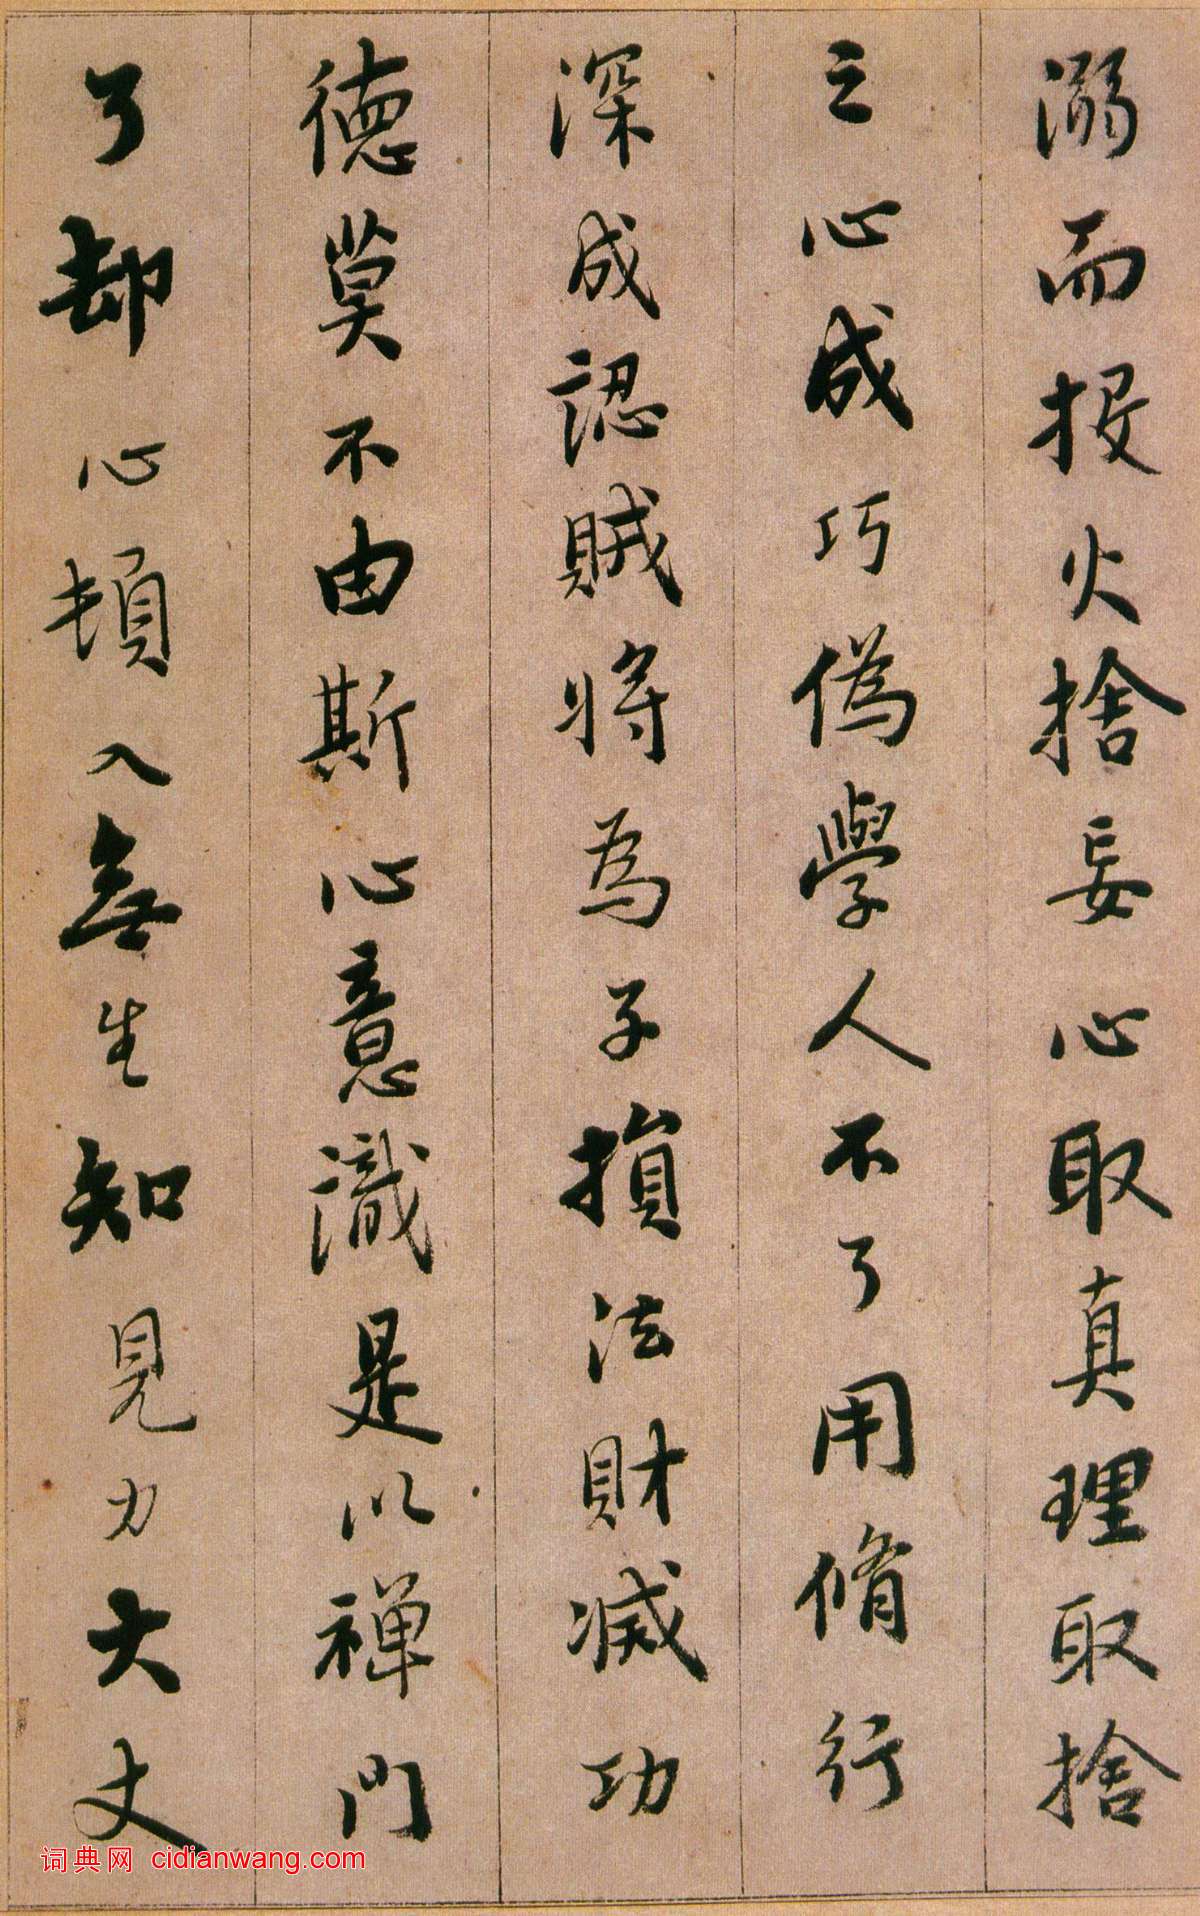 溺而投火捨妄心取真理取捨
之心成巧偽學人不了用脩行
深成認賊將為子損法財滅功
德莫不由斯心意識是以禪門
了却心頓入無生知見力大丈
词典网 cidianwang.com